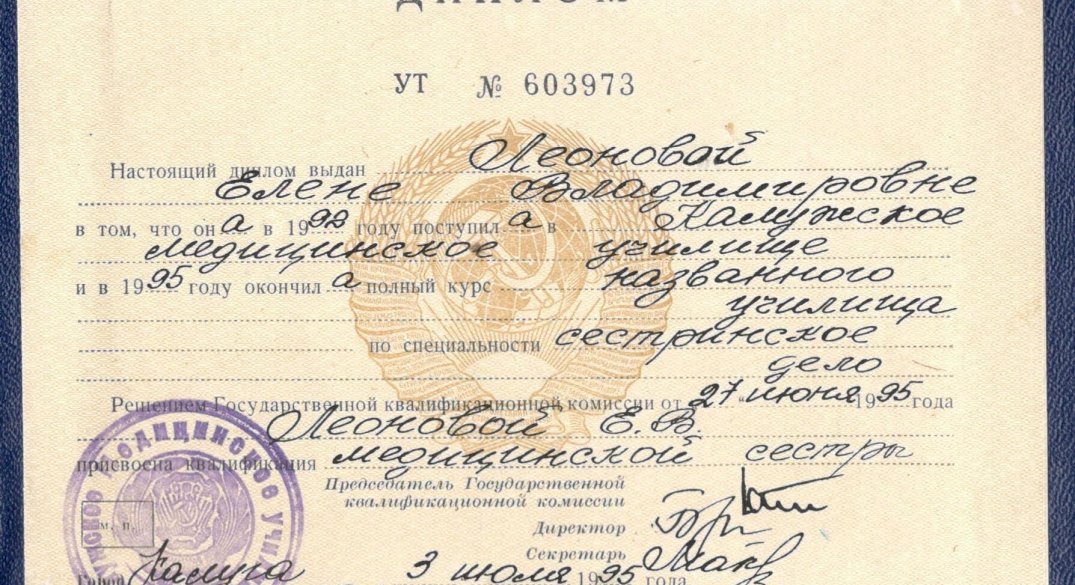 ДИПЛОМ
УТ № 603973
Настоящий диплом выдан Леоновой
Елене Владимировне
в том, что она в 1992 году поступила в Калужское
медицинское училище
и в 1995 году окончила полный курс названного
училища
по специальности сестринское
дело
Решением Государственной квалификационной комиссии от 27 июня 1995 года
Леоновой Е.В.
присвоена квалификация медицинской сестры
Председатель Государственной
квалификационной комиссии
Директор
Секретарь
м. п.
Город Калуга 3 июля 1995 года
медицинское учи